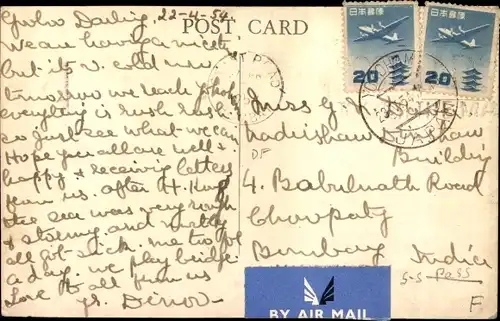 22-4-54
Goloo Darling
We are having a nice time
but its v. cold now
tomorrow we reach
everything is rush rush
so just see what we can
Hope you all are well &
happy & receiving letters
from us. after H. Kong
the sea was very rough
& stormy, and nearly
all got sick. me too for
a day. we play bridge.
Love to all from us
yr.
POST CARD
日本郵便
20
日本郵便
20
JAPAN
Miss
Building
4. Babulnath Road
Chowpaty
Bombay India
S-S-Pass
DF
F
BY AIR MAIL